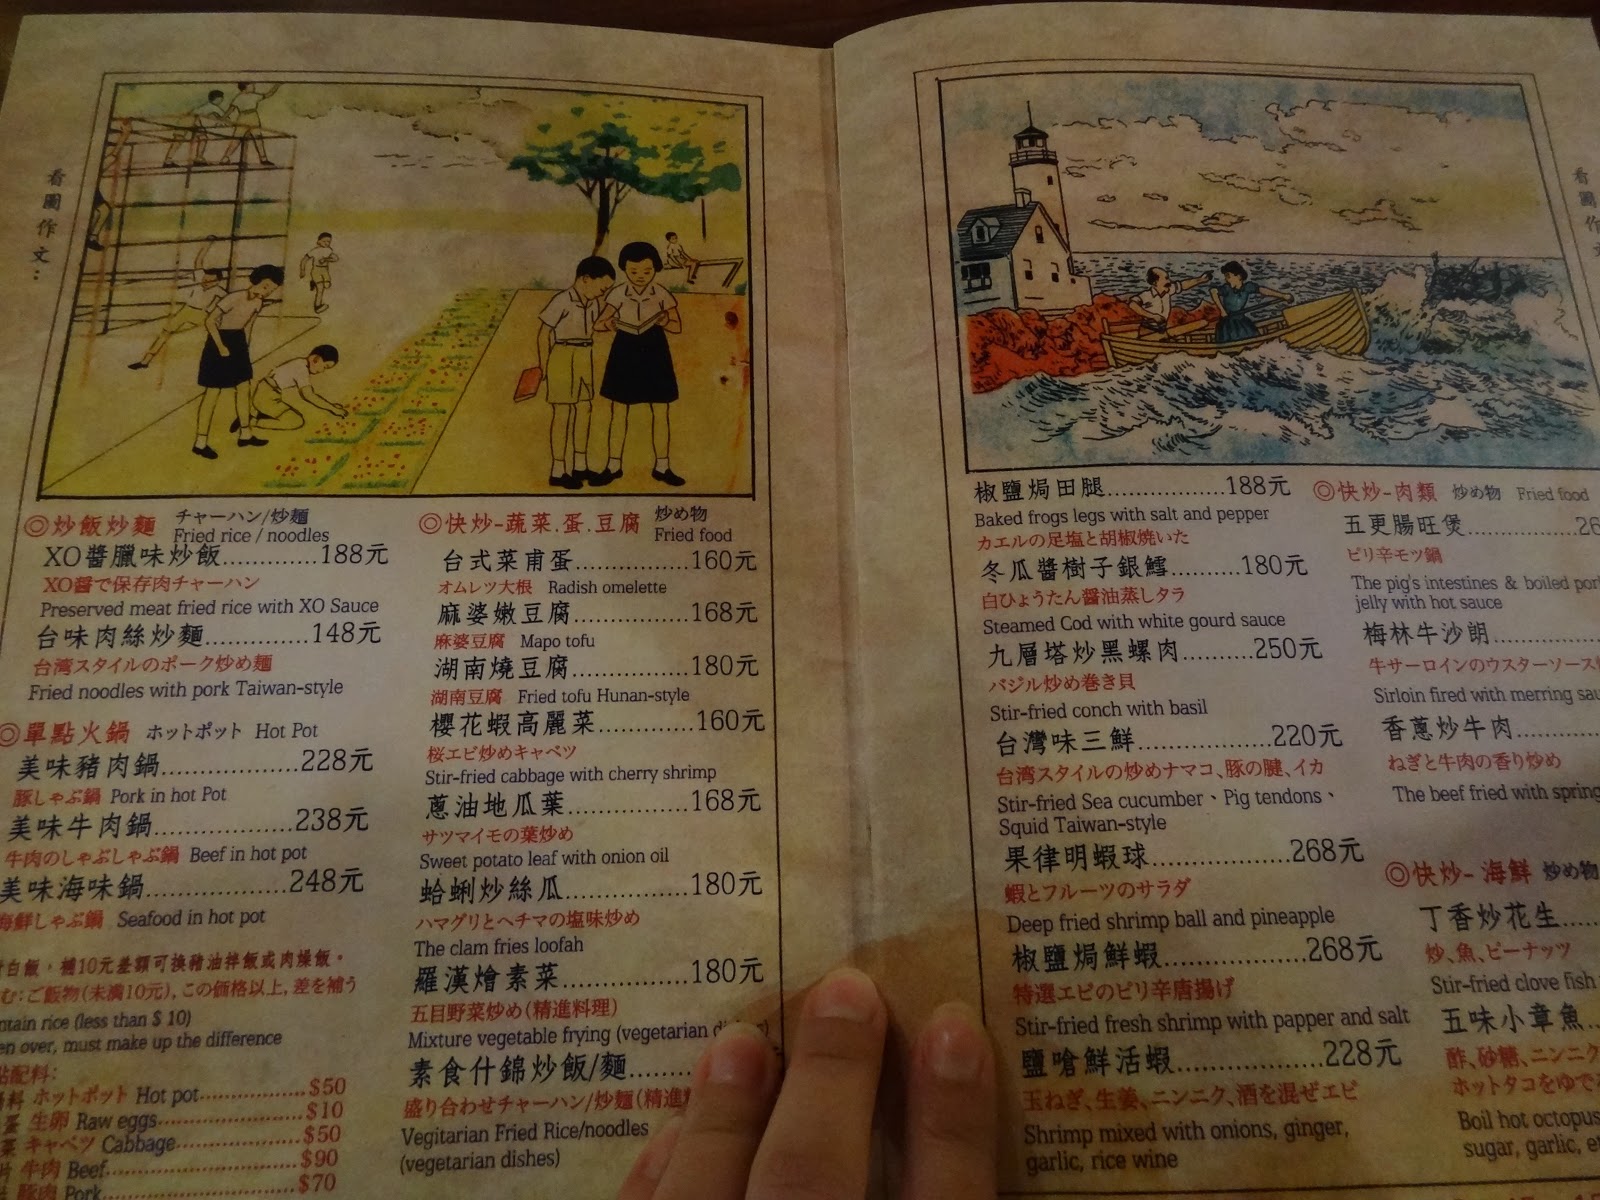 看圖作文：
◎炒飯炒麵 チャーハン/炒麺
Fried rice / noodles
XO醬臘味炒飯............188元
XO醤で保存肉チャーハン
Preserved meat fried rice with XO Sauce
台味肉絲炒麵..............148元
台湾スタイルのポーク炒め麺
Fried noodles with pork Taiwan-style
◎單點火鍋 ホットポット Hot Pot
美味豬肉鍋...................228元
豚しゃぶ鍋 Pork in hot Pot
美味牛肉鍋...................238元
牛肉のしゃぶしゃぶ鍋 Beef in hot pot
美味海味鍋...................248元
海鮮しゃぶ鍋 Seafood in hot pot
白飯，補10元差額可換豬油拌飯或肉燥飯。
む：ご飯物(未満10元)，この価格以上，差を補う
ntain rice (less than $ 10)
en over, must make up the difference
點配料：
料 ホットポット Hot pot...............$50
蛋 生卵 Raw eggs....................$10
菜 キャベツ Cabbage...................$50
片 牛肉 Beef.........................$90
豚肉 Pork.........................$70
◎快炒-蔬菜.蛋.豆腐 炒め物
Fried food
台式菜甫蛋................160元
オムレツ大根 Radish omelette
麻婆嫩豆腐................168元
麻婆豆腐 Mapo tofu
湖南燒豆腐................180元
湖南豆腐 Fried tofu Hunan-style
櫻花蝦高麗菜.............160元
桜エビ炒めキャベツ
Stir-fried cabbage with cherry shrimp
蔥油地瓜葉................168元
サツマイモの葉炒め
Sweet potato leaf with onion oil
蛤蜊炒絲瓜................180元
ハマグリとヘチマの塩味炒め
The clam fries loofah
羅漢燴素菜................180元
五目野菜炒め(精進料理)
Mixture vegetable frying (vegetarian
素食什錦炒飯/麵........
盛り合わせチャーハン/炒麺(精進
Vegitarian Fried Rice/noodles
(vegetarian dishes)
看圖作文
椒鹽焗田腿................188元
Baked frogs legs with salt and pepper
カエルの足塩と胡椒焼いた
冬瓜醬樹子銀鱈..........180元
白ひょうたん醤油蒸しタラ
Steamed Cod with white gourd sauce
九層塔炒黑螺肉..........250元
バジル炒め巻き貝
Stir-fried conch with basil
台灣味三鮮...................220元
台湾スタイルの炒めナマコ、豚の腱、イカ
Stir-fried Sea cucumber、Pig tendons、
Squid Taiwan-style
果律明蝦球...................268元
蝦とフルーツのサラダ
Deep fried shrimp ball and pineapple
椒鹽焗鮮蝦...................268元
特選エビのピリ辛唐揚げ
Stir-fried fresh shrimp with papper and salt
鹽嗆鮮活蝦...................228元
玉ねぎ、生姜、ニンニク、酒を混ぜエビ
Shrimp mixed with onions, ginger,
garlic, rice wine
◎快炒-肉類 炒め物 Fried food
五更腸旺煲................26
ピリ辛モツ鍋
The pig's intestines & boiled por
jelly with hot sauce
梅林牛沙朗..............
牛サーロインのウスターソース
Sirloin fired with merring sau
香蔥炒牛肉............
ねぎと牛肉の香り炒め
The beef fried with spring
◎快炒-海鮮 炒め物
丁香炒花生.....
炒、魚、ピーナッツ
Stir-fried clove fish
五味小章魚..
酢、砂糖、ニンニク
ホットタコをゆで
Boil hot octopus
sugar, garlic, e